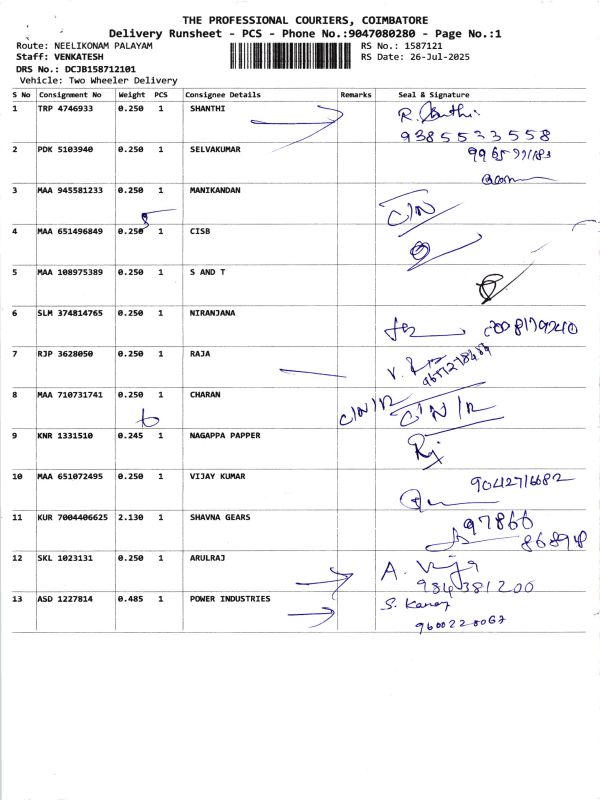 THE PROFESSIONAL COURIERS, COIMBATORE
Delivery Runsheet - PCS - Phone No.:9047080280 - Page No.:1
Route: NEELIKONAM PALAYAM RS No.: 1587121
Staff: VENKATESH RS Date: 26-Jul-2025
DRS No.: DCJB158712101
Vehicle: Two Wheeler Delivery
S No Consignment No Weight PCS Consignee Details Remarks Seal & Signature
1 TRP 4746933 0.250 1 SHANTHI R.
9385533558
2 PDK 5103940 0.250 1 SELVAKUMAR
3 MAA 945581233 0.250 1 MANIKANDAN C/N
4 MAA 651496849 0.250 1 CISB
5 MAA 108975389 0.250 1 S AND T
6 SLM 374814765 0.250 1 NIRANJANA
7 RJP 3628050 0.250 1 RAJA
8 MAA 710731741 0.250 1 CHARAN C/N/R C/N/R
9 KNR 1331510 0.245 1 NAGAPPA PAPPER
10 MAA 651072495 0.250 1 VIJAY KUMAR 9042716682
11 KUR 7004406625 2.130 1 SHAVNA GEARS 97866
868948
12 SKL 1023131 0.250 1 ARULRAJ A.
984381200
13 ASD 1227814 0.485 1 POWER INDUSTRIES S.
9600220067